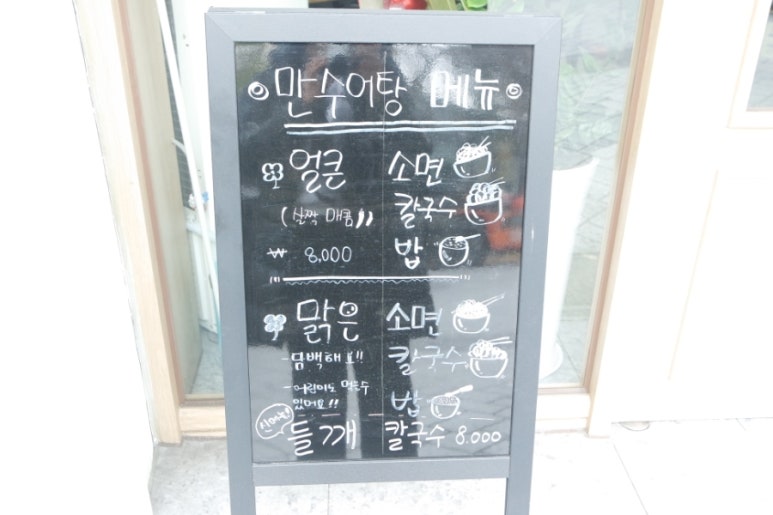 만수어탕 메뉴
얼큰 소면
(살짝 매콤)) 칼국수
₩ 8,000 밥
맑은 소면
- 담백해요!! 칼국수
- 어린이도 먹을수
있어요!! 밥
들깨 칼국수 8.000